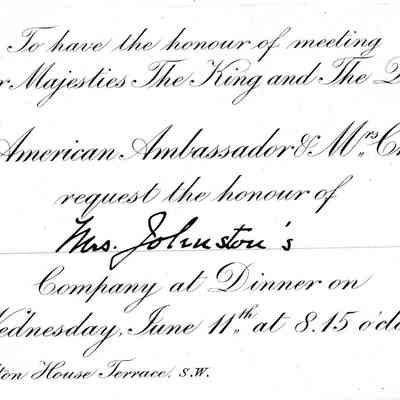 To have the honour of meeting
r Majesties The King and The
American Ambassador & Mrs. C
request the honour of
Mrs. Johnston's
Company at Dinner on
ednesday, June 11th at 8.15 o'cl
ton House Terrace. S.W.